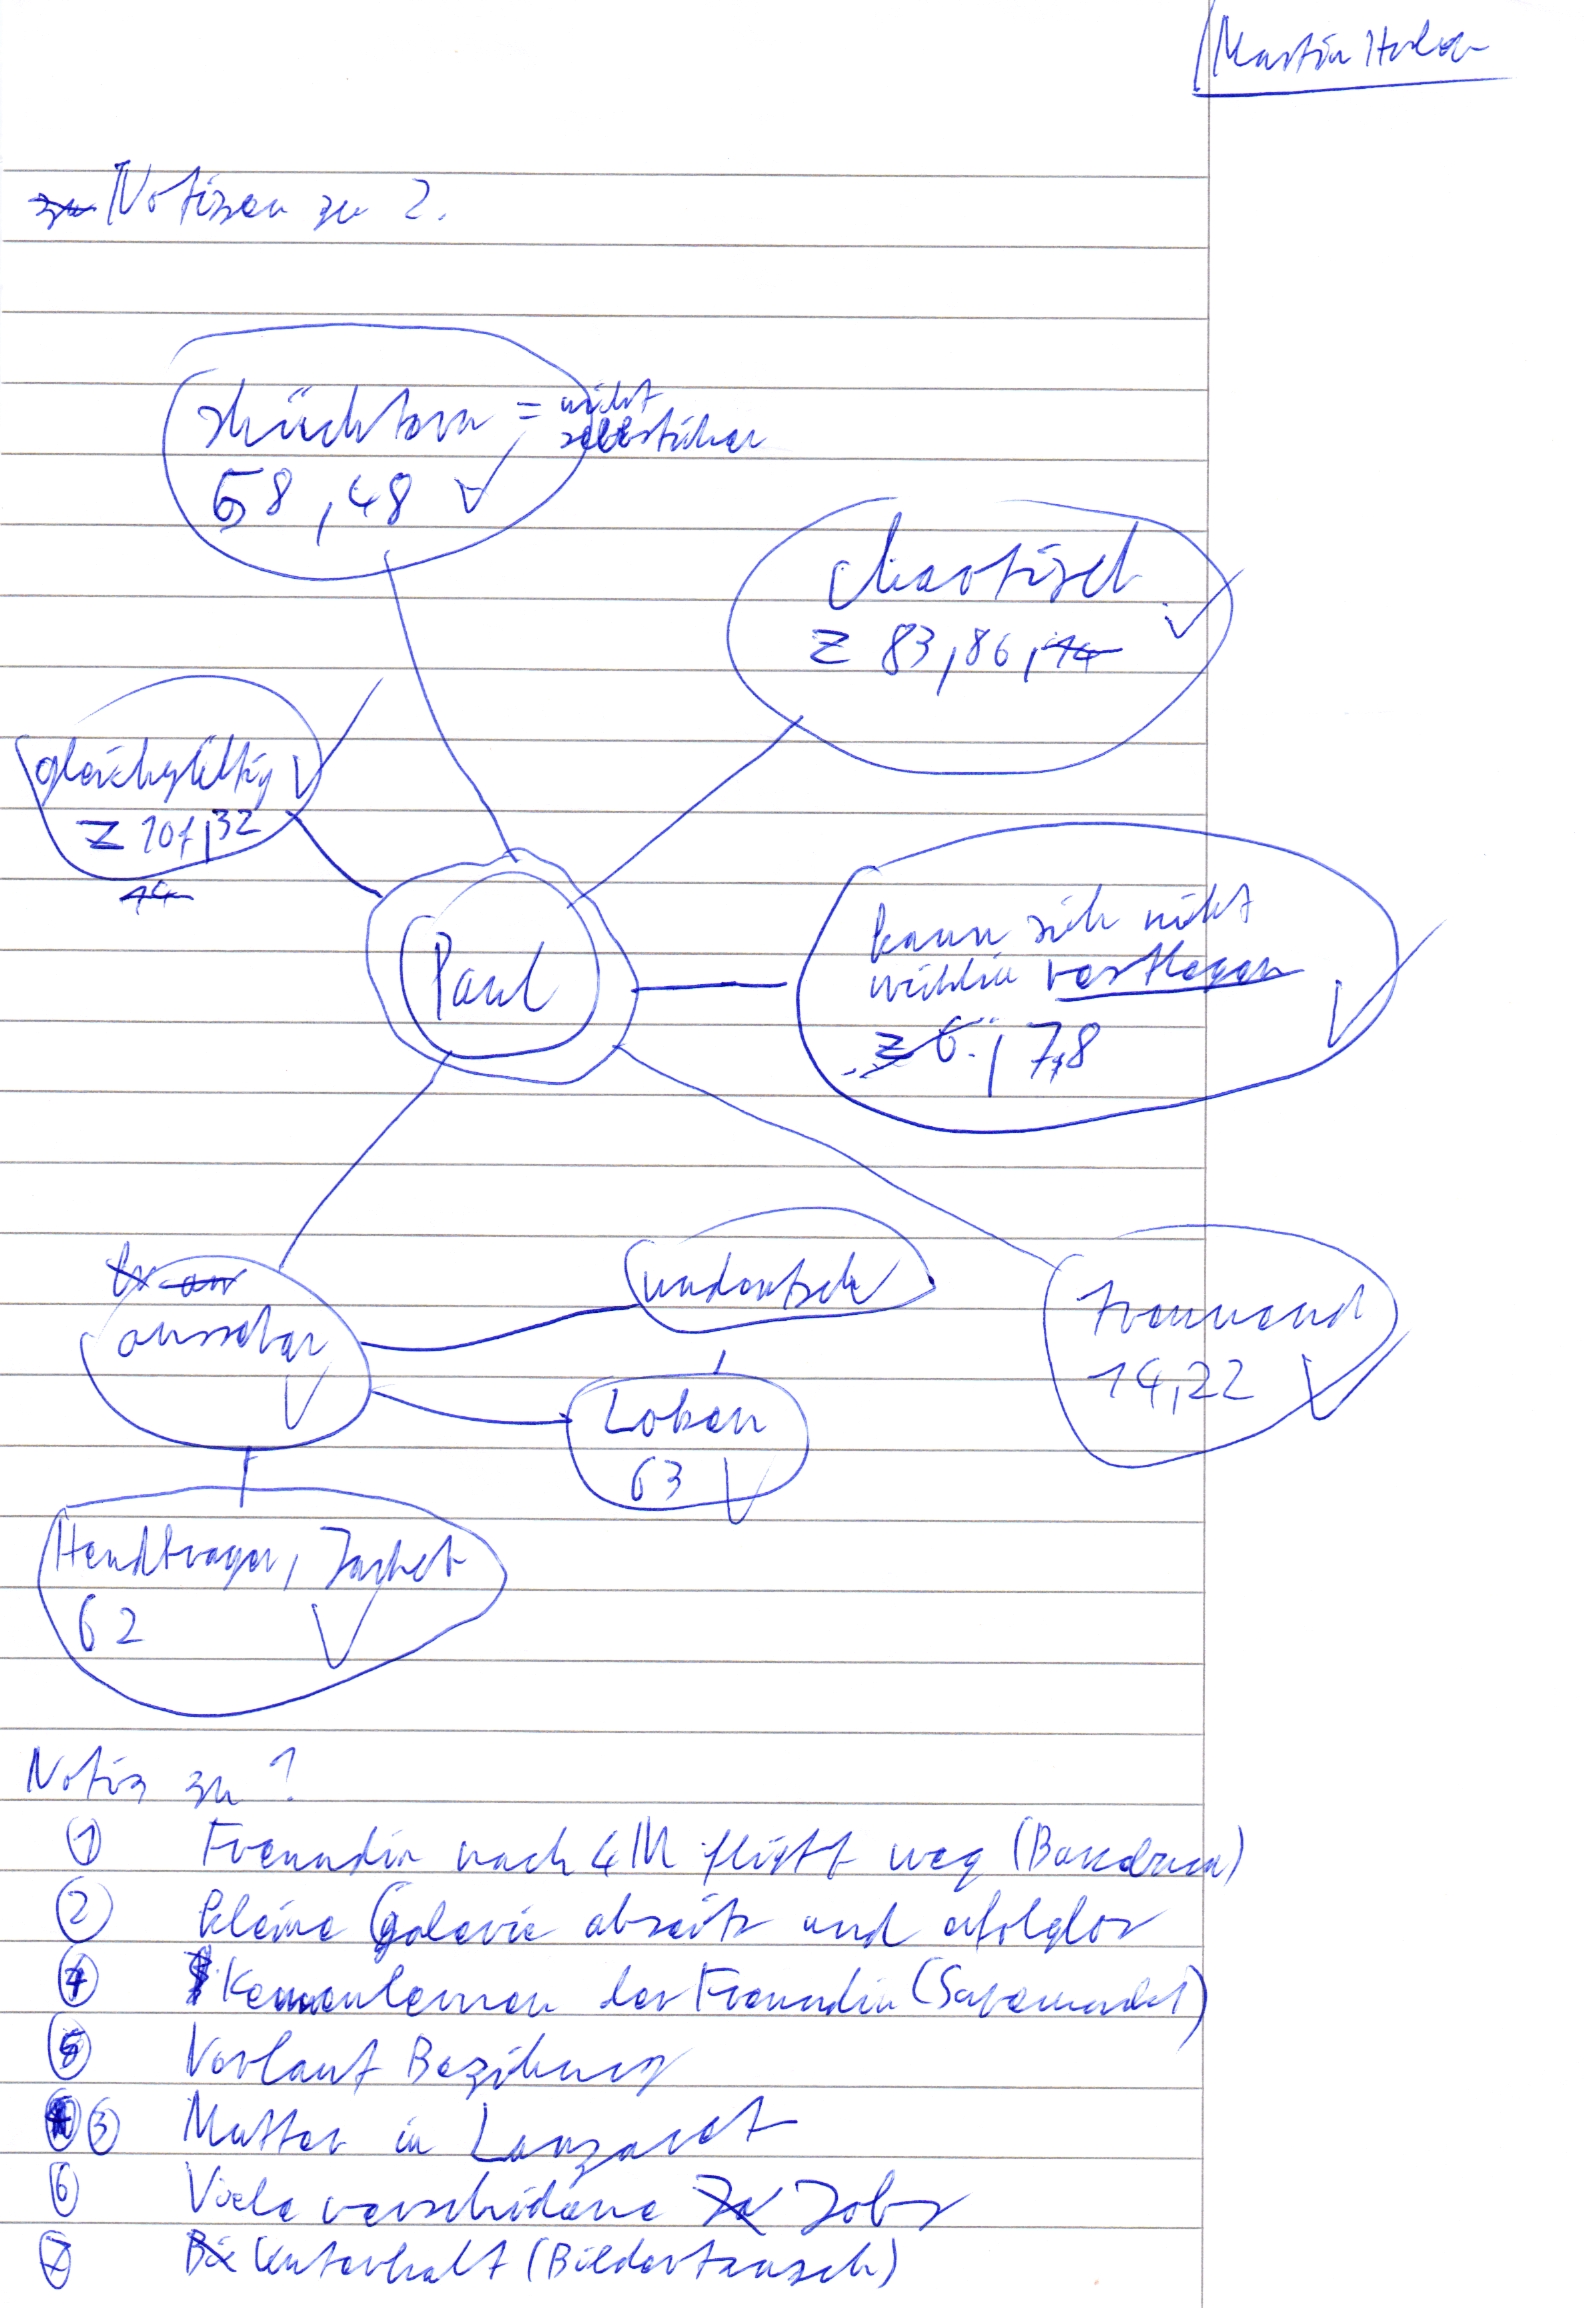 Martin
Notizen zu 2.
schüchtern = nicht
selbstsicher
58, 48
chaotisch
Z 83, 86, 14
gleichgültig
Z 107, 32
14
Paul
kann sich nicht
wirklich vestlegen
Z 6., 7,8
ausseher
undeutsch
trennend
14, 22
Loken
63
Hemdkragen, Jacket
62
Notiz zu 1
① Freundin nach 4 M fligtt weg (Bandrum)
② kleine Galerie abseits und erfolglos
④ Kennenlernen der Freundin (Supermarkt)
⑤ Verlauf Bezihung
③ Mutter in Lanzarot
⑥ Viele verschidene Jobs
⑦ Unterhalt (Bildertausch)